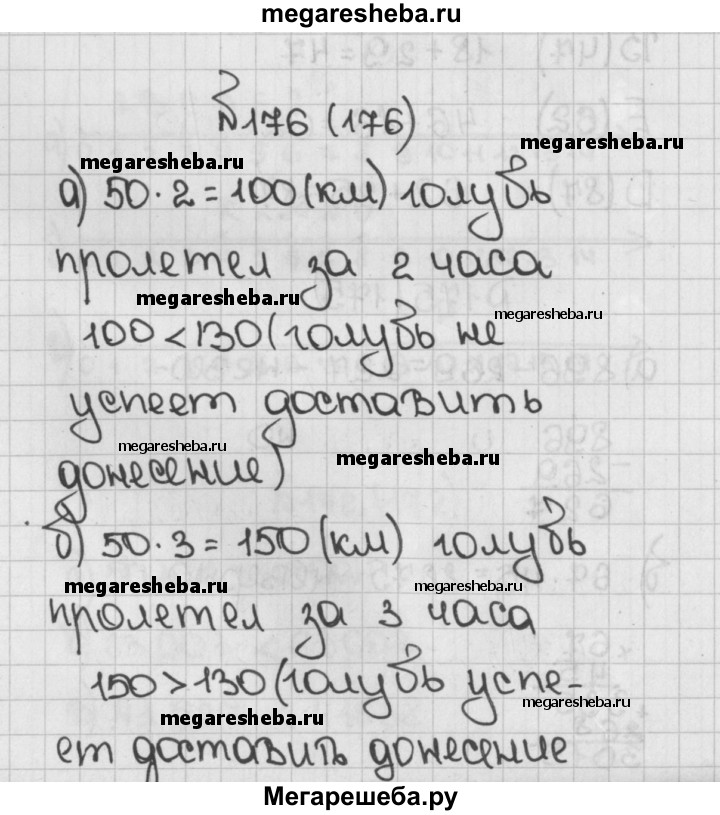 megaresheba.ru
№176 (176)
megaresheba.ru
megaresheba.ru
а) 50·2=100(км) голубь
пролетел за 2 часа
megaresheba.ru
megaresheba.ru
100<130(голубь не
успеет доставить
megaresheba.ru
megaresheba.ru
донесение)
б) 50·3=150(км) голубь
megaresheba.ru
megaresheba.ru
пролетел за 3 часа
150>130(голубь успе-
megaresheba.ru
megaresheba.ru
ет доставить донесение
Мегарешеба.ру